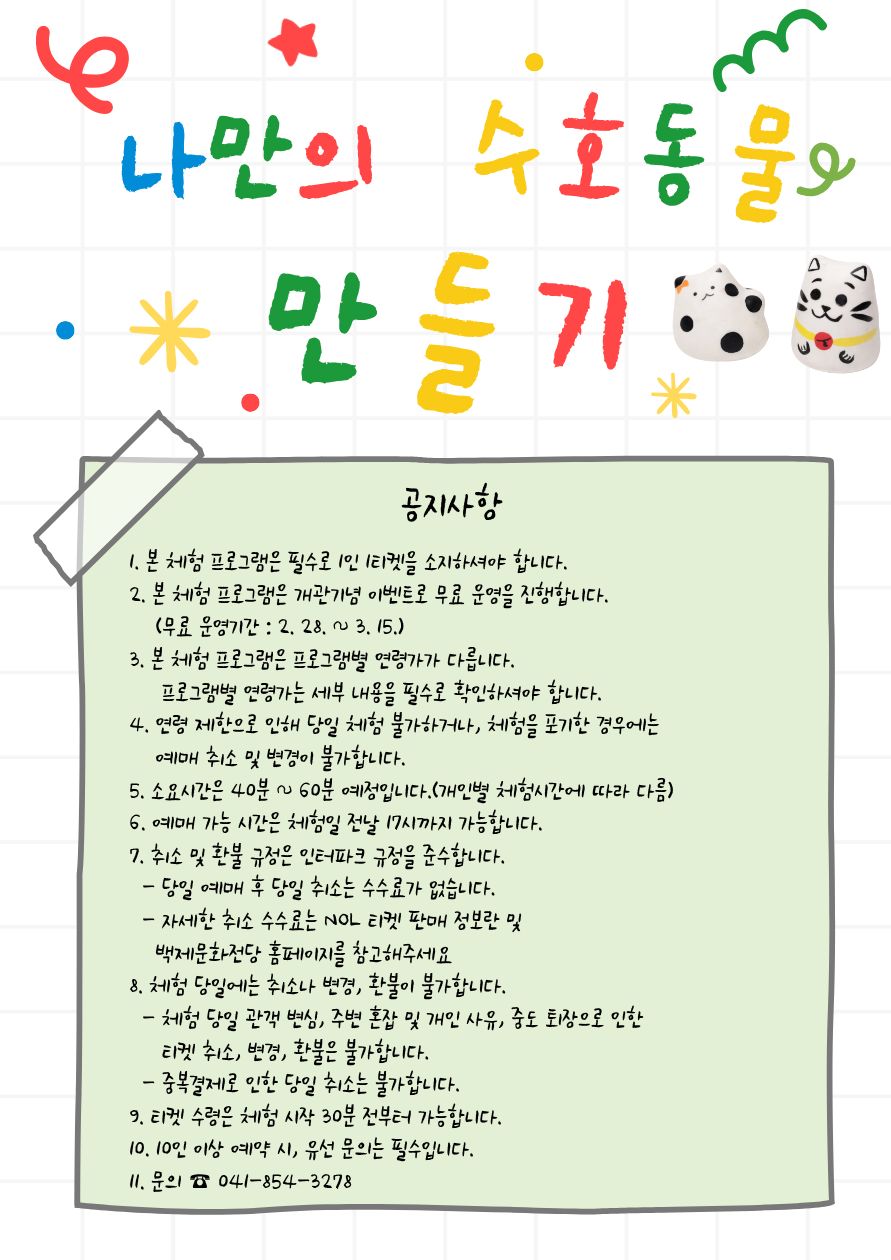 나만의 수호동물
만들기
공지사항
1. 본 체험 프로그램은 필수로 1인 1티켓을 소지하셔야 합니다.
2. 본 체험 프로그램은 개관기념 이벤트로 무료 운영을 진행합니다.
(무료 운영기간 : 2. 28. ~ 3. 15.)
3. 본 체험 프로그램은 프로그램별 연령가가 다릅니다.
프로그램별 연령가는 세부 내용을 필수로 확인하셔야 합니다.
4. 연령 제한으로 인해 당일 체험 불가하거나, 체험을 포기한 경우에는
예매 취소 및 변경이 불가합니다.
5. 소요시간은 40분 ~ 60분 예정입니다.(개인별 체험시간에 따라 다름)
6. 예매 가능 시간은 체험일 전날 17시까지 가능합니다.
7. 취소 및 환불 규정은 인터파크 규정을 준수합니다.
- 당일 예매 후 당일 취소는 수수료가 없습니다.
- 자세한 취소 수수료는 NOL 티켓 판매 정보란 및
백제문화전당 홈페이지를 참고해주세요
8. 체험 당일에는 취소나 변경, 환불이 불가합니다.
- 체험 당일 관객 변심, 주변 혼잡 및 개인 사유, 중도 퇴장으로 인한
티켓 취소, 변경, 환불은 불가합니다.
- 중복결제로 인한 당일 취소는 불가합니다.
9. 티켓 수령은 체험 시작 30분 전부터 가능합니다.
10. 10인 이상 예약 시, 유선 문의는 필수입니다.
11. 문의 ☎ 041-854-3278